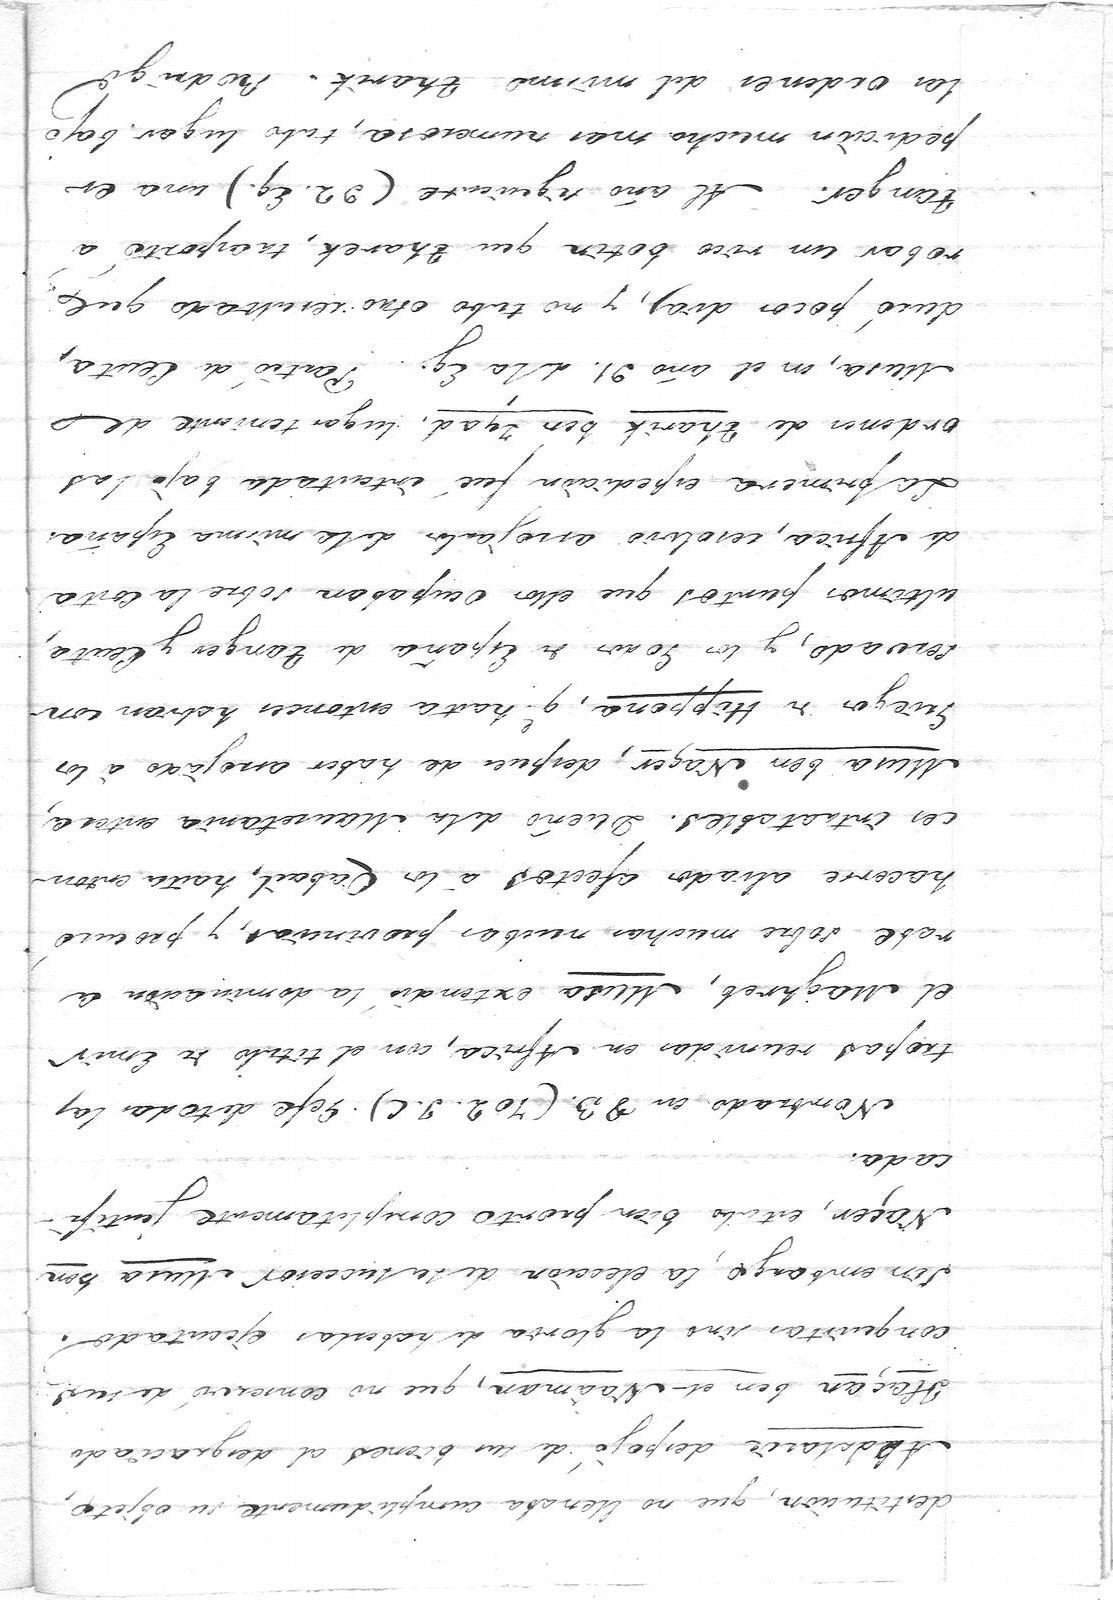 destitucion, que no llenaba cumplidamente su objeto,
Abdelaziz despojó de sus bienes al desgraciado
Haçan ben el-Nâaman, que no conservó de sus
conquistas sino la gloria de haberlas ejecutado.
Sin embargo, la eleccion de su succesor Musa ben
Naçer, estubo bien pronto completamente justifi-
cada.
Nombrado en 83. (702. J.C) Gefe de todas las
tropas reunidas en Africa, con el titulo de Emir
el Maghreb, Musa extendió la dominacion a
rabe sobre muchas nuebas provincias, y procuró
hacerse aliados afectos à los Cabail, hasta enton-
ces intratables. Dueño de la Mauretania entera,
Musa ben Naçer, despues de haber arrojado à los
Griegos de Hippona, q.e hasta entonces habian con-
servado, y los Godos de España de Tanger y Ceuta,
ultimos puntos que ellos ocupaban sobre la costa
de Africa, resolvió arrojarlos de la misma España.
La primera expedicion fué intentada bajo las
ordenes de Tharik ben Zyad, lugar teniente de
Musa, en el año 91. de la Eg. Partió de Ceuta,
duró pocos dias, y no tubo otro resultado que
robar un rico botin que Tharek, trasportó à
Tanger. Al año siguiente (92. Eg.) una es
pedicion mucho mas numerosa, tubo lugar bajo
las ordenes del mismo Tharik. Rodrigo